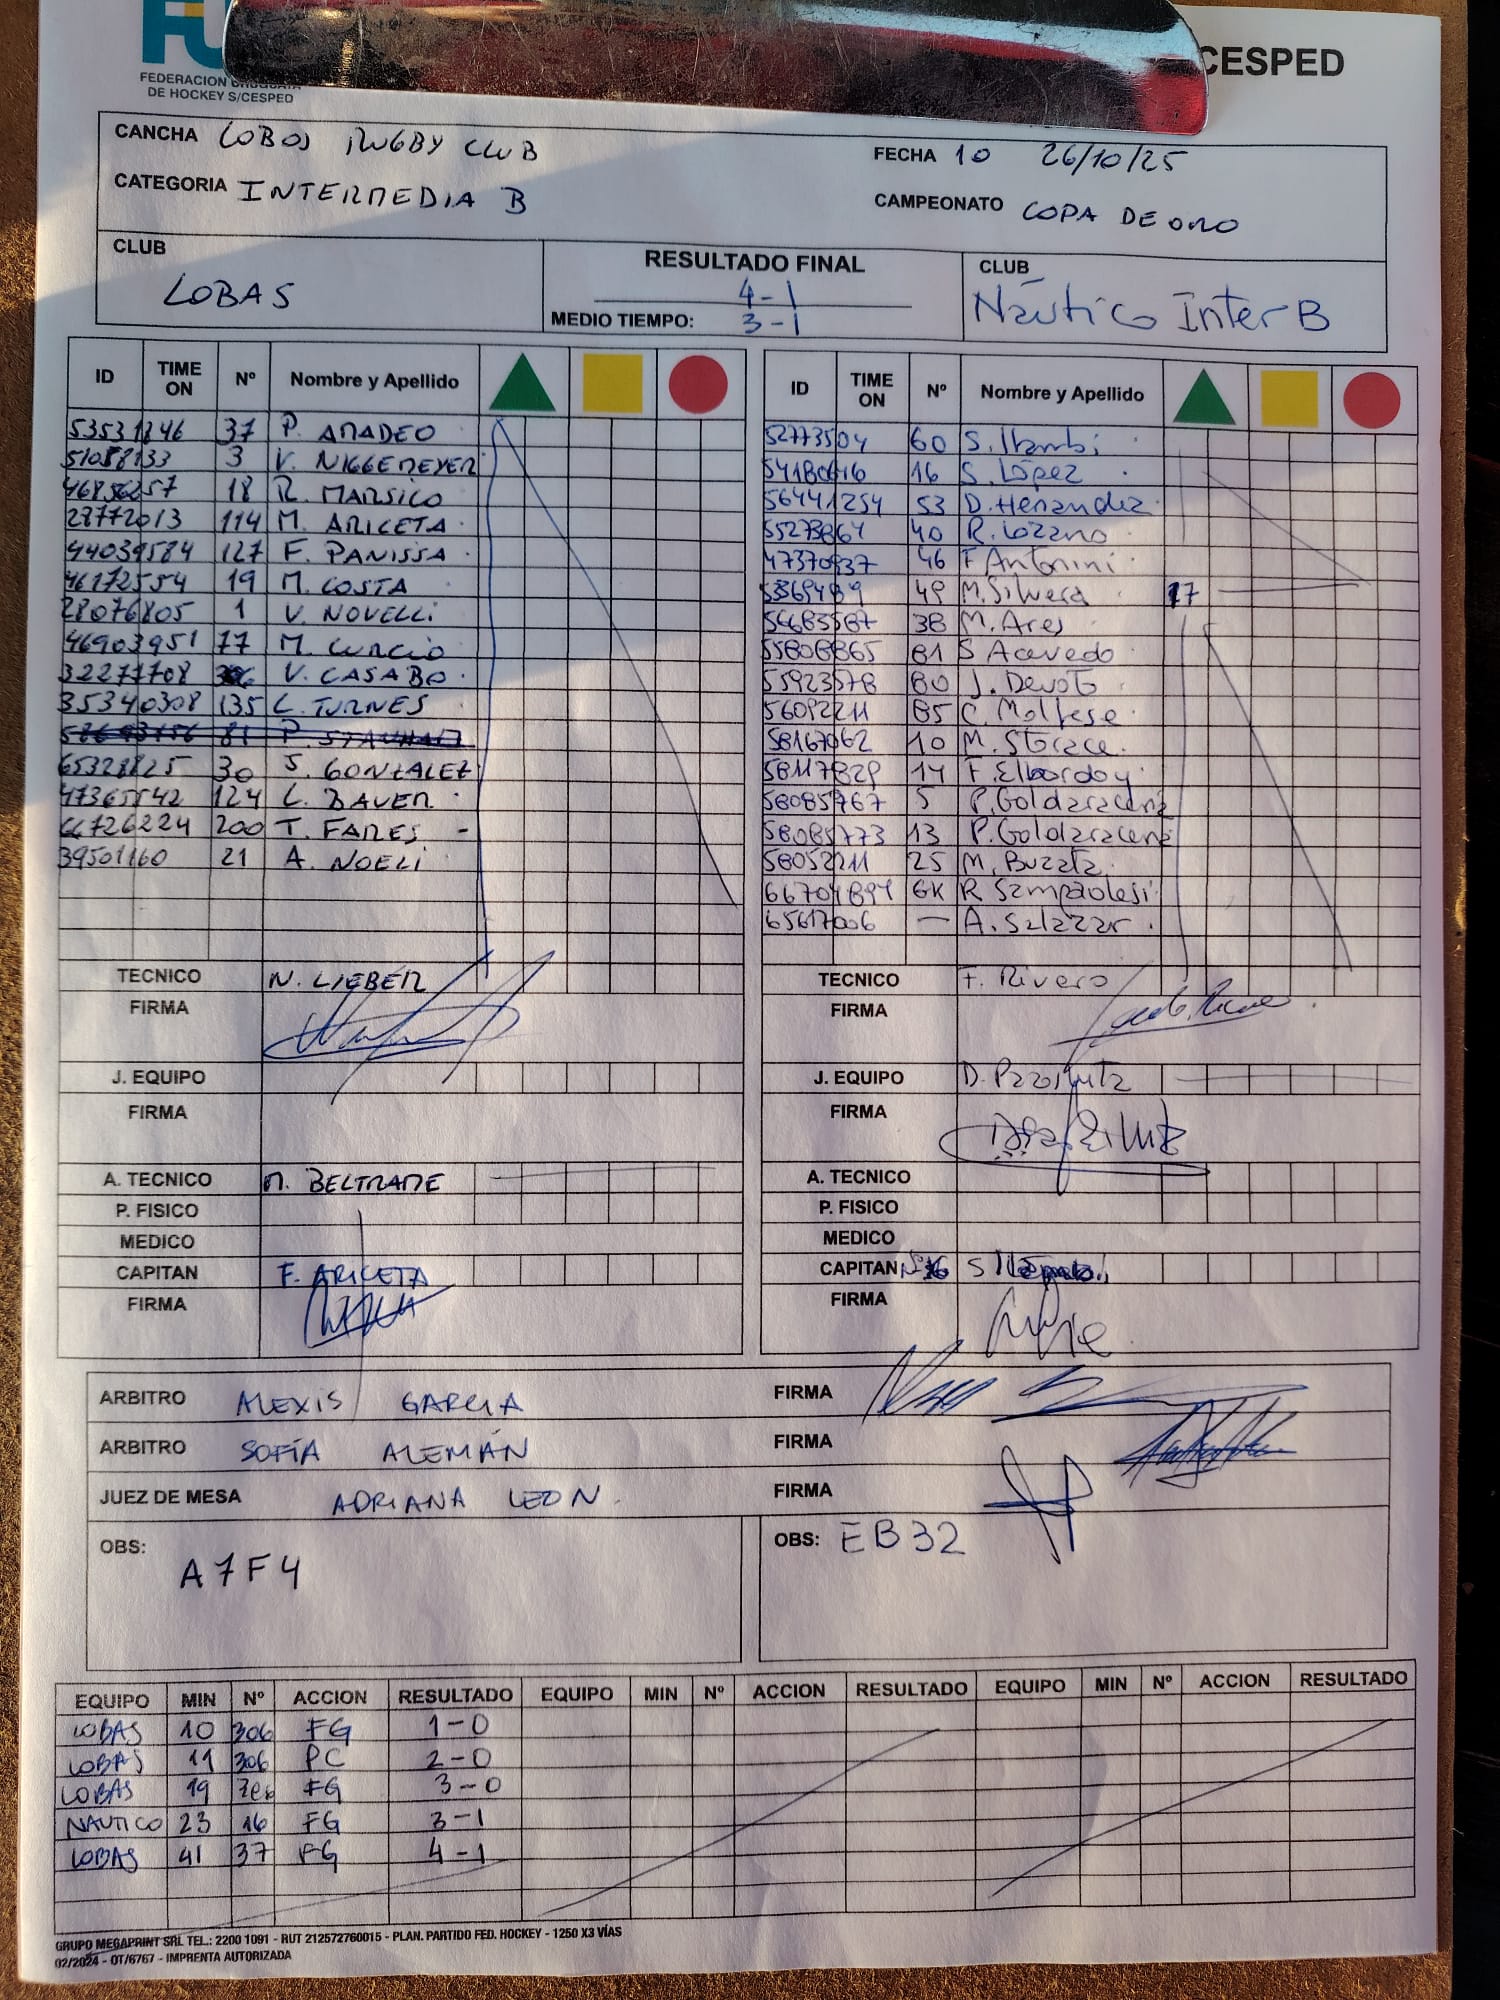 FEDERACION URUGUAYA
DE HOCKEY S/CESPED
CESPED
CANCHA LOBOS RUGBY CLUB
FECHA 10 26/10/25
CATEGORIA INTERMEDIA B
CAMPEONATO COPA DE ORO
CLUB LOBAS
RESULTADO FINAL 4-1
MEDIO TIEMPO: 3-1
CLUB Náutico Inter B
ID TIME ON Nº Nombre y Apellido
37 P. AMADEO
51088133 3 V. NIGGEMEYER
46856257 18 R. MARSICO
28772013 114 M. ARICETA
44039584 127 F. PANISSA
46172554 19 M. COSTA
28076805 1 V. NOVELLI
46903951 77 M. CURCIO
32277708 V. CASABO
35340308 135 L. TURNES
81 P.
65328825 30 S. GONZALEZ
47365542 124 L. BAUER
200 T. FARES -
39501160 21 A. NOELI
TECNICO N. LIEBER
FIRMA
J. EQUIPO
FIRMA
A. TECNICO M. BELTRAME
P. FISICO
MEDICO
CAPITAN F. ARICETA
FIRMA
ID TIME ON Nº Nombre y Apellido
52773504 60 S. Ilambi
54180616 16 S. López
56441254 53 D. Hernandez
55273864 40 R. Lozano
47370937 46 F Antonini
49 M. Silvera 17
38 M. Ares
55808865 81 S Acevedo
55923578 80 J. Devoto
56092211 85 C. Moltese
58167062 10 M. Storace
58117829 14 F. Elbordoy
58085767 5 P. Goldaracena
58085773 13 P. Goldaracena
58052211 25 M. Buzeta
66704894 GK R Sampaolesi
65617006 — A. Salazar
TECNICO F. Rivero
FIRMA
J. EQUIPO D.
FIRMA
A. TECNICO
P. FISICO
MEDICO
CAPITAN S
FIRMA
ARBITRO ALEXIS GARCIA FIRMA
ARBITRO SOFÍA ALEMÁN FIRMA
JUEZ DE MESA ADRIANA LEON FIRMA
OBS: A7F4
OBS: EB32
EQUIPO MIN Nº ACCION RESULTADO EQUIPO MIN Nº ACCION RESULTADO EQUIPO MIN Nº ACCION RESULTADO
LOBAS 10 306 FG 1-0
LOBAS 11 306 PC 2-0
LOBAS 19 FG 3-0
NAUTICO 23 16 FG 3-1
LOBAS 41 37 FG 4-1
GRUPO MEGAPRINT SRL TEL.: 2200 1091 - RUT 212572760015 - PLAN. PARTIDO FED. HOCKEY - 1250 X3 VÍAS
02/2024 - OT/6767 - IMPRENTA AUTORIZADA